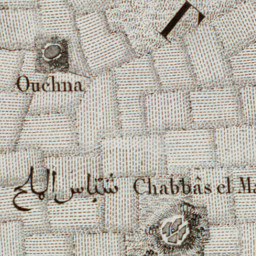 Ouchna
شباس الملح Chabbâs el Ma